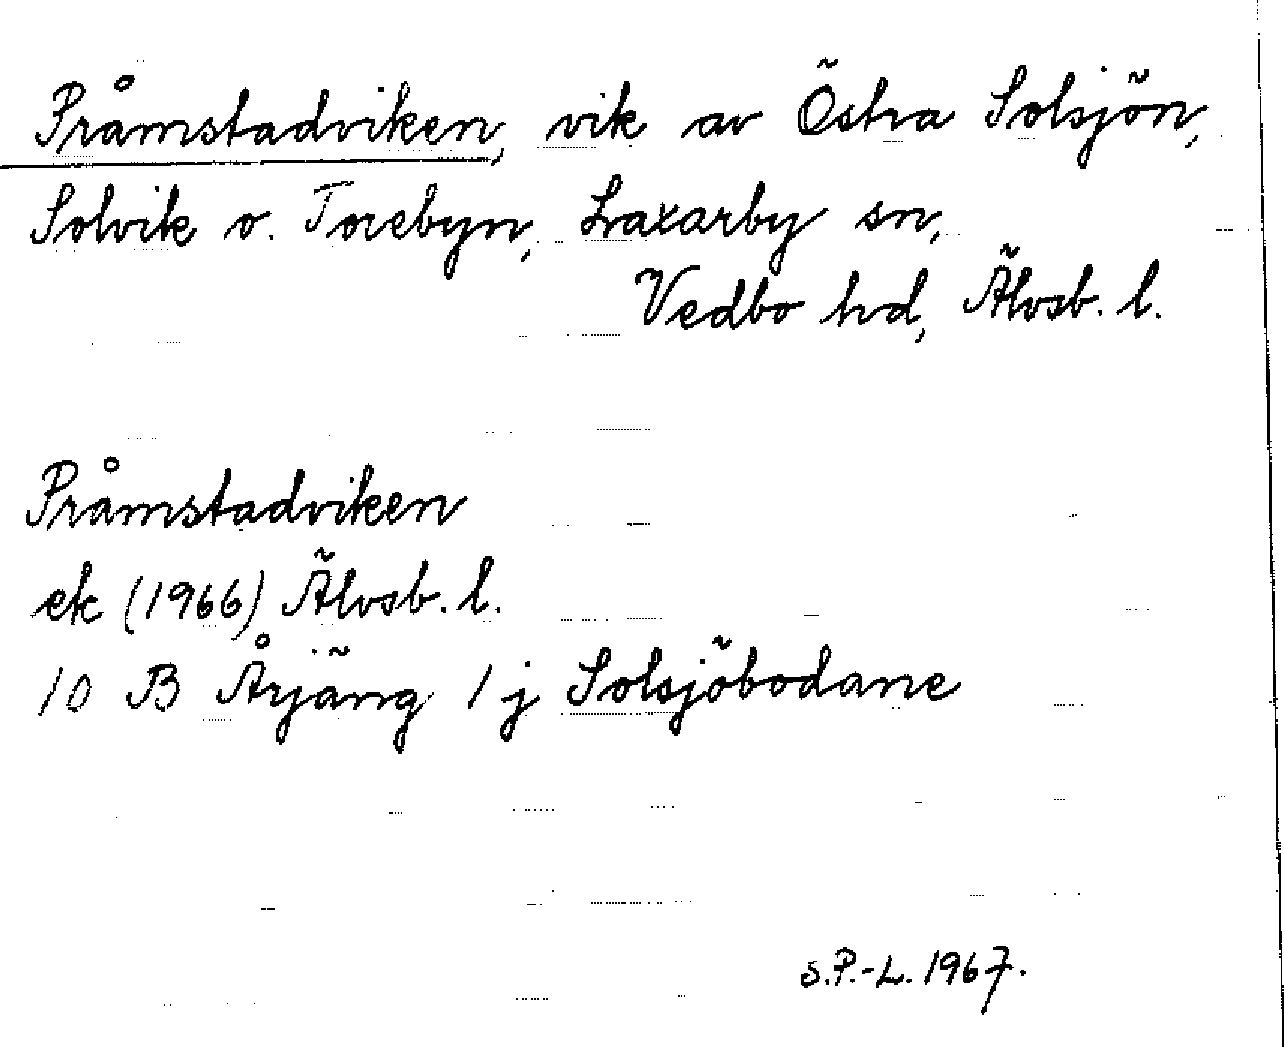 Pråmstadviken, vik av Östra Solsjön,
Solvik o. Torebyn, Laxarby sn,
Vedbo hd, Älvsb. l.
Pråmstadviken
ek (1966) Älvsb. l.
10 B Årjäng 1 j Solsjöbodane
S.P.-L. 1967.